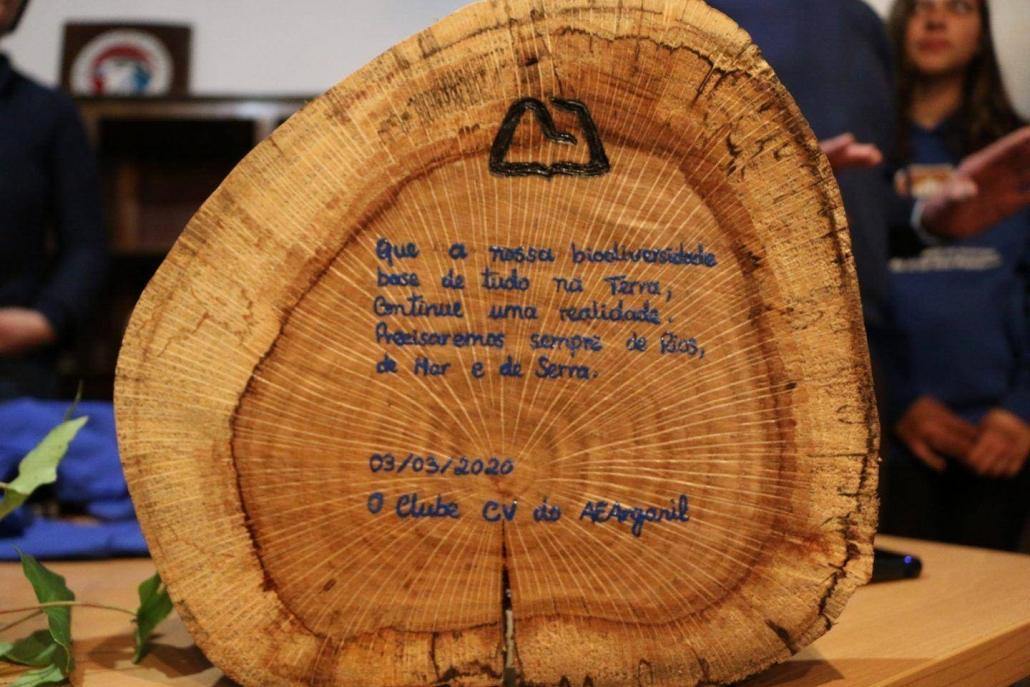 Que a nossa biodiversidade
base de tudo na Terra,
Continue uma realidade.
Precisaremos sempre de Rios,
de Mar e de Serra.
03/03/2020
O Clube CV do AEArganil